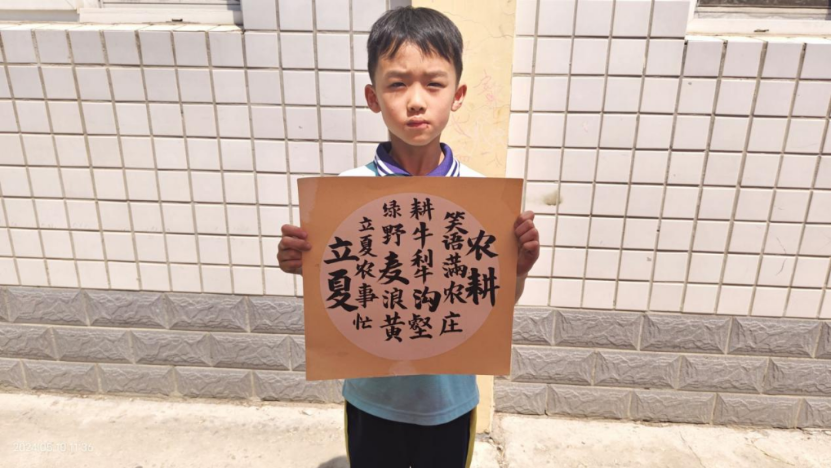 立夏
立夏农事忙
绿野麦浪黄
耕牛犁沟壑
笑语满农庄
农耕